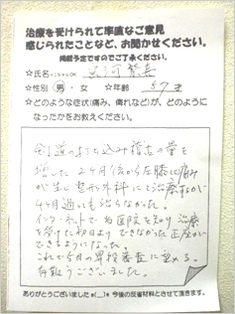 治療を受けられて率直なご意見
感じられたことなど、お聞かせください。
掲載予定ですのでご了承ください。
☆氏名
☆性別 男・女 ☆年齢 57才
☆どのような症状(痛み、痺れなど)が、どのように
なったかをお教えください。
剣道の打ち込み稽古の量を
増した2ヶ月後から左膝に痛み
が生じ整形外科にて治療するが
4ヶ月通いも治らなかった。
インターネットで当医院を知り治療
を受けた初日よりできなかった正座が
できるようになった。
これで5月の昇段審査に
有難うございました。
ありがとうございました m(__)m 今後の反省材料とさせて頂きます。